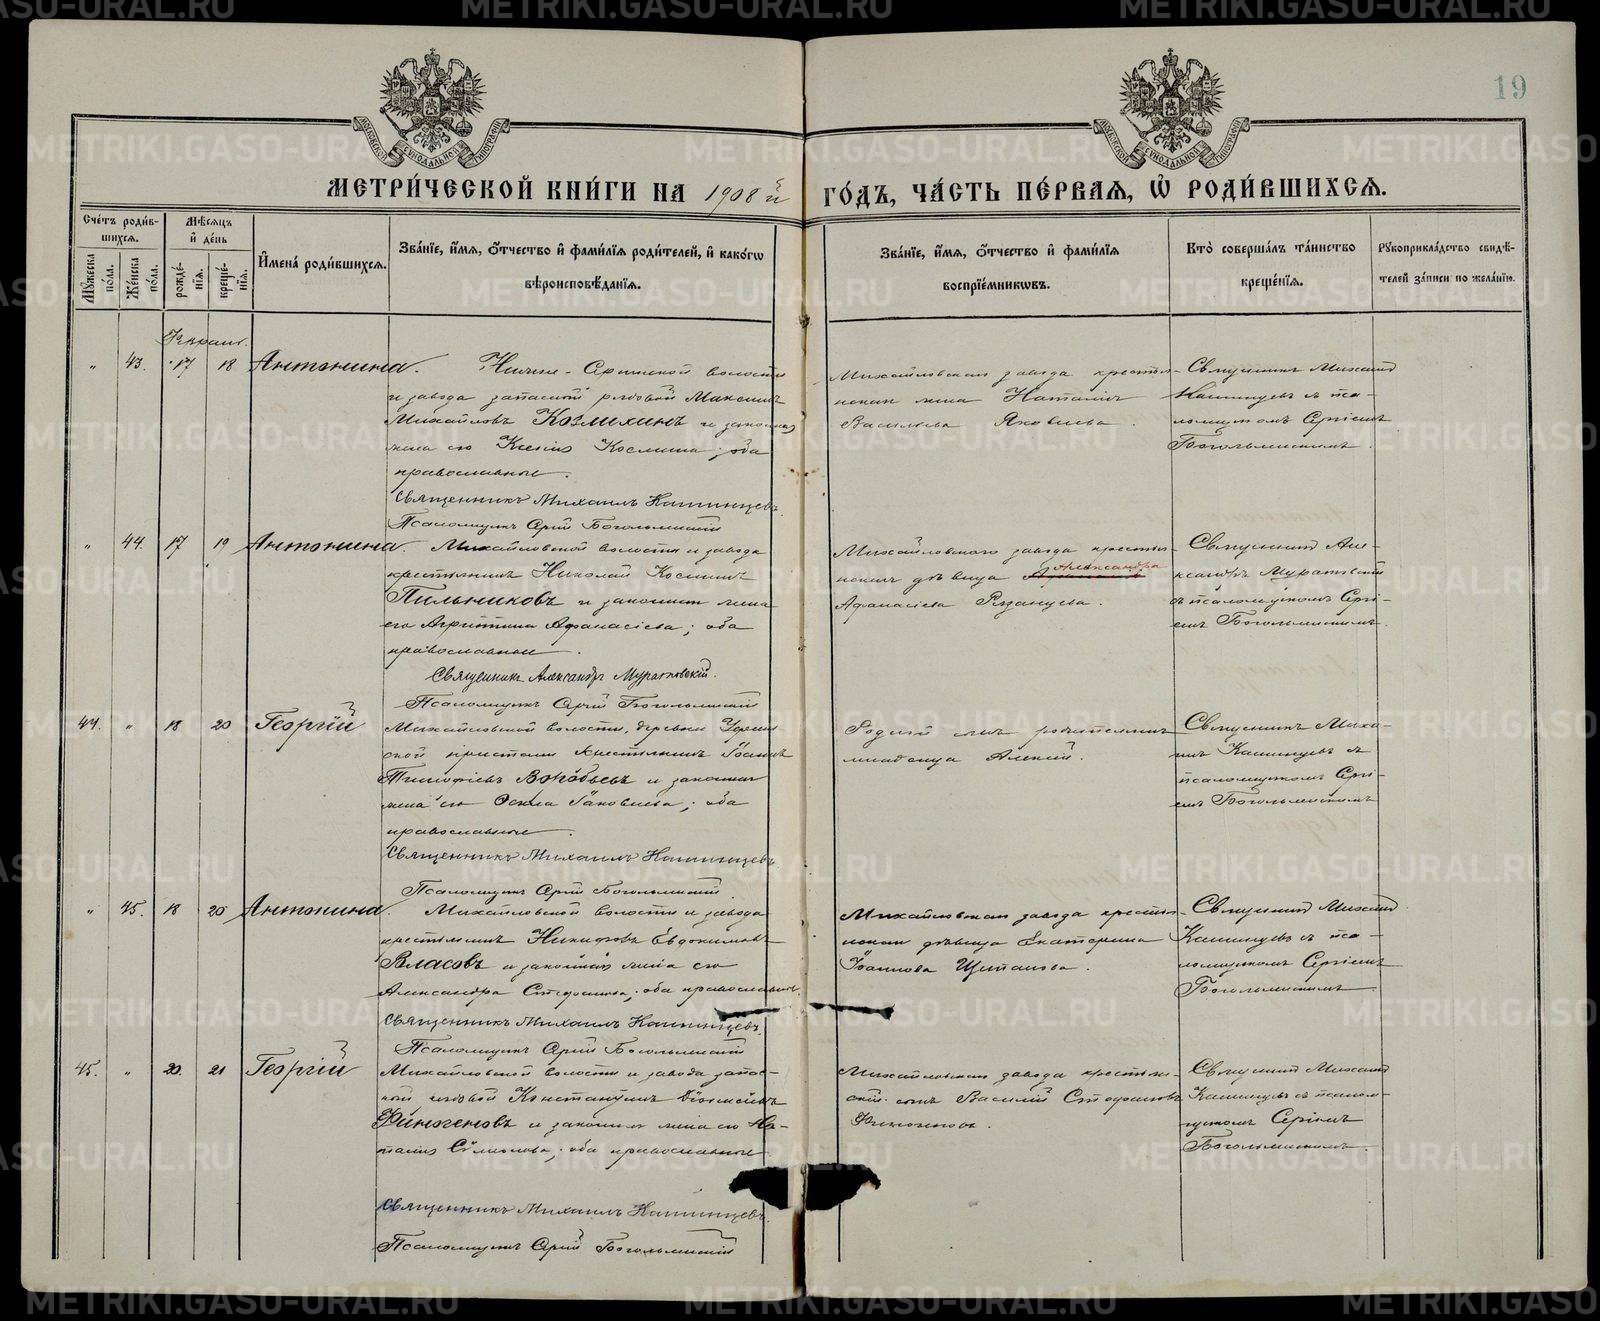 19
МОСКОВСКОЙ СѴНОДАЛЬНОЙ ТИПОГРАФІИ
МОСКОВСКОЙ СѴНОДАЛЬНОЙ ТИПОГРАФІИ
МЕТРИ́ЧЕСКОЙ КНИ́ГИ НА 1908й ГО́ДЪ, ЧА́СТЬ ПЕ́РВАЯ, Ѡ РОДИ́ВШИХСЯ.
Сче́тъ роди́в-
шихся.
Мѣсяцъ
и де́нь
Мꙋжеска по́ла.
Же́нска по́ла.
рожде́-
нія.
креще́-
нія.
Имена̀ роди́вшихся.
Зва́ніе, и́мя, о́тчество и фами́лія роди́телей, и како́гѡ
вѣроисповѣ́данія.
Зва́ніе, и́мя, о́тчество и фами́лія
воспріе́мникѡвъ.
Кто̀ соверша́лъ та́инство
креще́нія.
Рꙋкоприкла́дство свидѣ́-
телей за́писи по жела́нію.
" 43. 17 18 Антонина.
Нижне-Сергинской волости
и завода запасной рядовой Максимъ
Михайловъ Козмихинъ и законная
жена его Ксенія Космина; оба
православные.
Священникъ Михаилъ Кашинцевъ
Псаломщикъ Сергій Богольминскій
Михайловскаго завода крестьян-
жена Наталія
Василиева Яковлева.
Священникъ Михаилъ
Кашинцевъ съ пса-
ломщикомъ Сергіемъ
" 44. 17 19 Антонина.
Михайловской волости и завода
крестьянинъ Николай Косминъ
Пильниковъ и законная жена
его Агриппина Афанасіева; оба
православные.
Священникъ Александръ Муратовскій.
Псаломщикъ Сергій
Михайловскаго завода крестьян-
дѣвица Александра
Афанасіева Рязанцева.
Священникъ Але-
ксандръ Муратовскій
съ псаломщикомъ Сергі-
емъ
44. " 18 20 Георгій
Михайловской волости, деревни
крестьянинъ Іоаннъ
Тимофіевъ Воробьевъ и законная
жена его Іаковлева; оба
православные.
Священникъ Михаилъ Кашинцевъ
Псаломщикъ Сергій
Родной сынъ родителямъ
младенца Алексій.
Священникъ Миха-
илъ Кашинцевъ съ
псаломщикомъ Сергі-
емъ
" 45. 18 20 Антонина.
Михайловской волости и завода
крестьянинъ Никифоръ Евдокимовъ
Власовъ и законная жена его
Александра Стефанова; оба православные.
Священникъ Михаилъ Кашинцевъ.
Псаломщикъ Сергій
Михайловскаго завода крестьян-
дѣвица Екатерина
Іоаннова Щипанова.
Священникъ Михаилъ
Кашинцевъ съ пса-
ломщикомъ Сергіемъ
45. " 20 21 Георгій
Михайловской волости и завода запас-
ной рядовой Константинъ
Финогеновъ и законная жена его На-
талія; оба православные.
Священникъ Михаилъ Кашинцевъ.
Псаломщикъ Сергій
Михайловскаго завода крестьян-
скій сынъ Василій Стефановъ
Финогеновъ.
Священникъ Михаилъ
Кашинцевъ съ псалом-
щикомъ Сергіемъ
METRIKI.GASO-URAL.RU